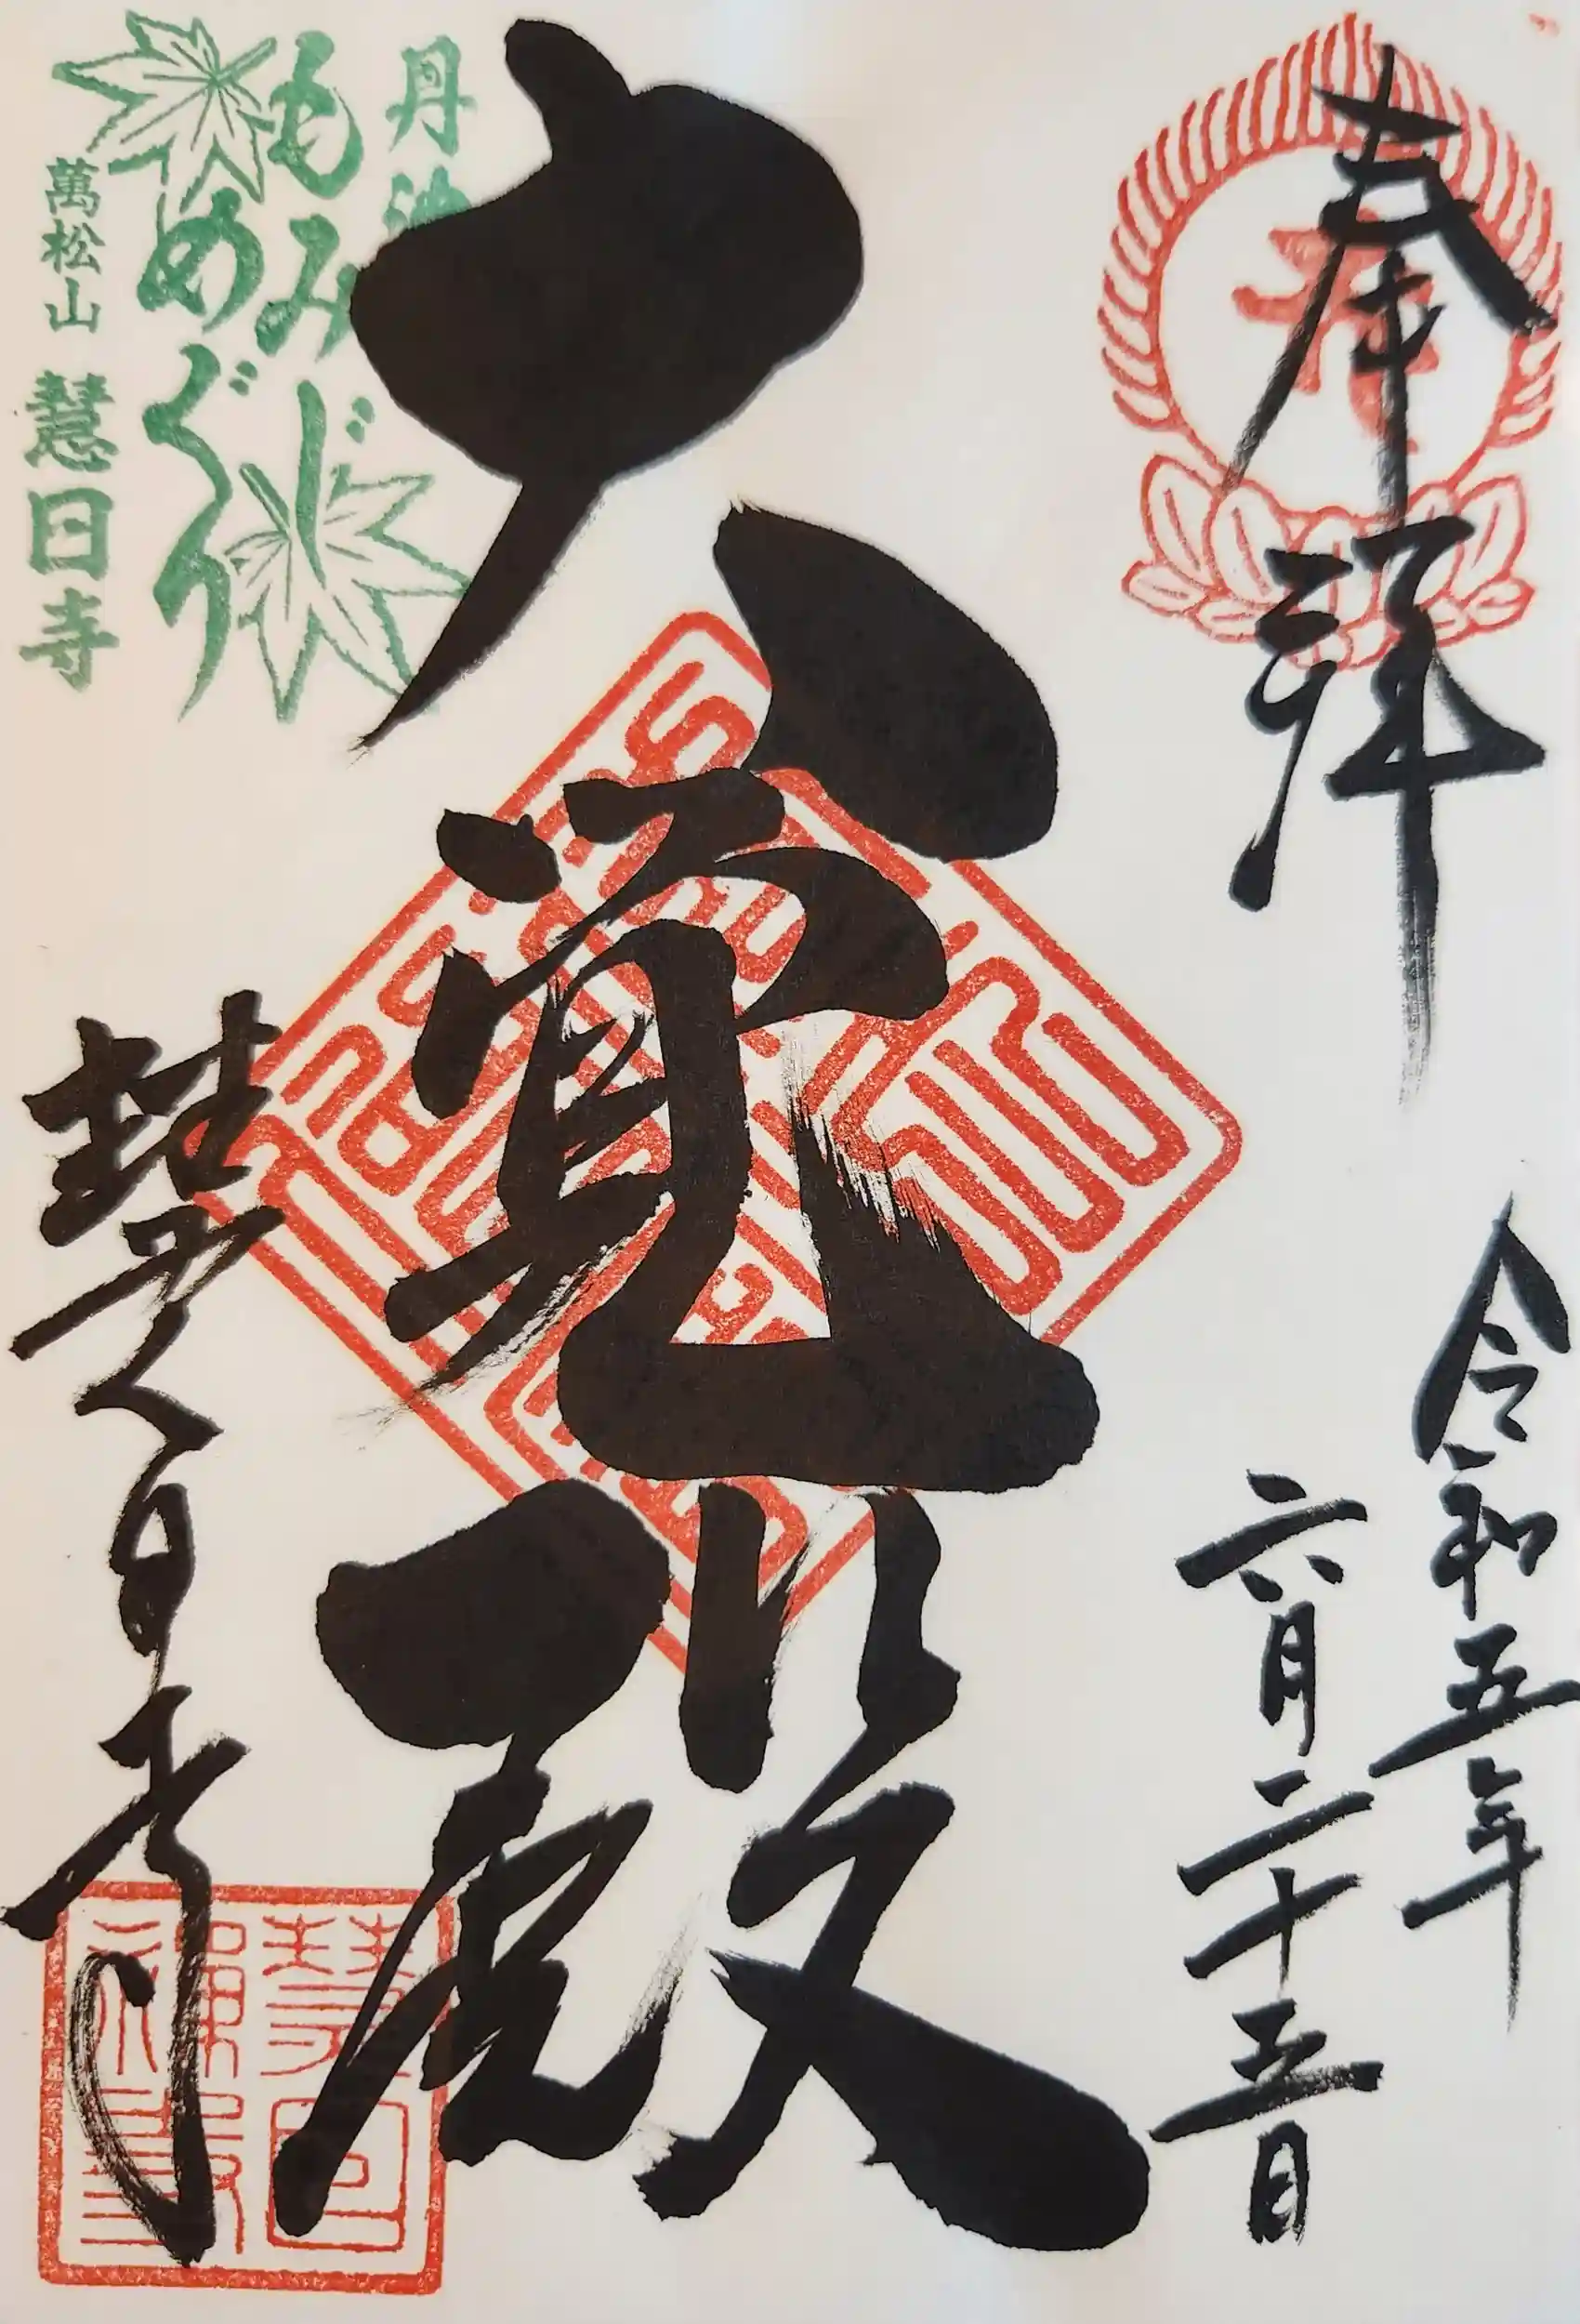 奉拝
令和五年
六月二十五日
大寶殿
慧日寺
丹波
もみじ
めぐり
萬松山 慧日寺
慧日禅寺